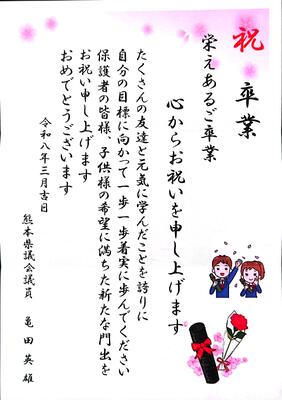 祝 卒業
栄えあるご卒業
心からお祝いを申し上げます
たくさんの友達と元気に学んだことを誇りに
自分の目標に向かって一歩一歩着実に歩んでください
保護者の皆様、子供様の希望に満ちた新たな門出を
お祝い申し上げます
おめでとうございます
令和八年三月吉日
熊本県議会議員 亀田英雄